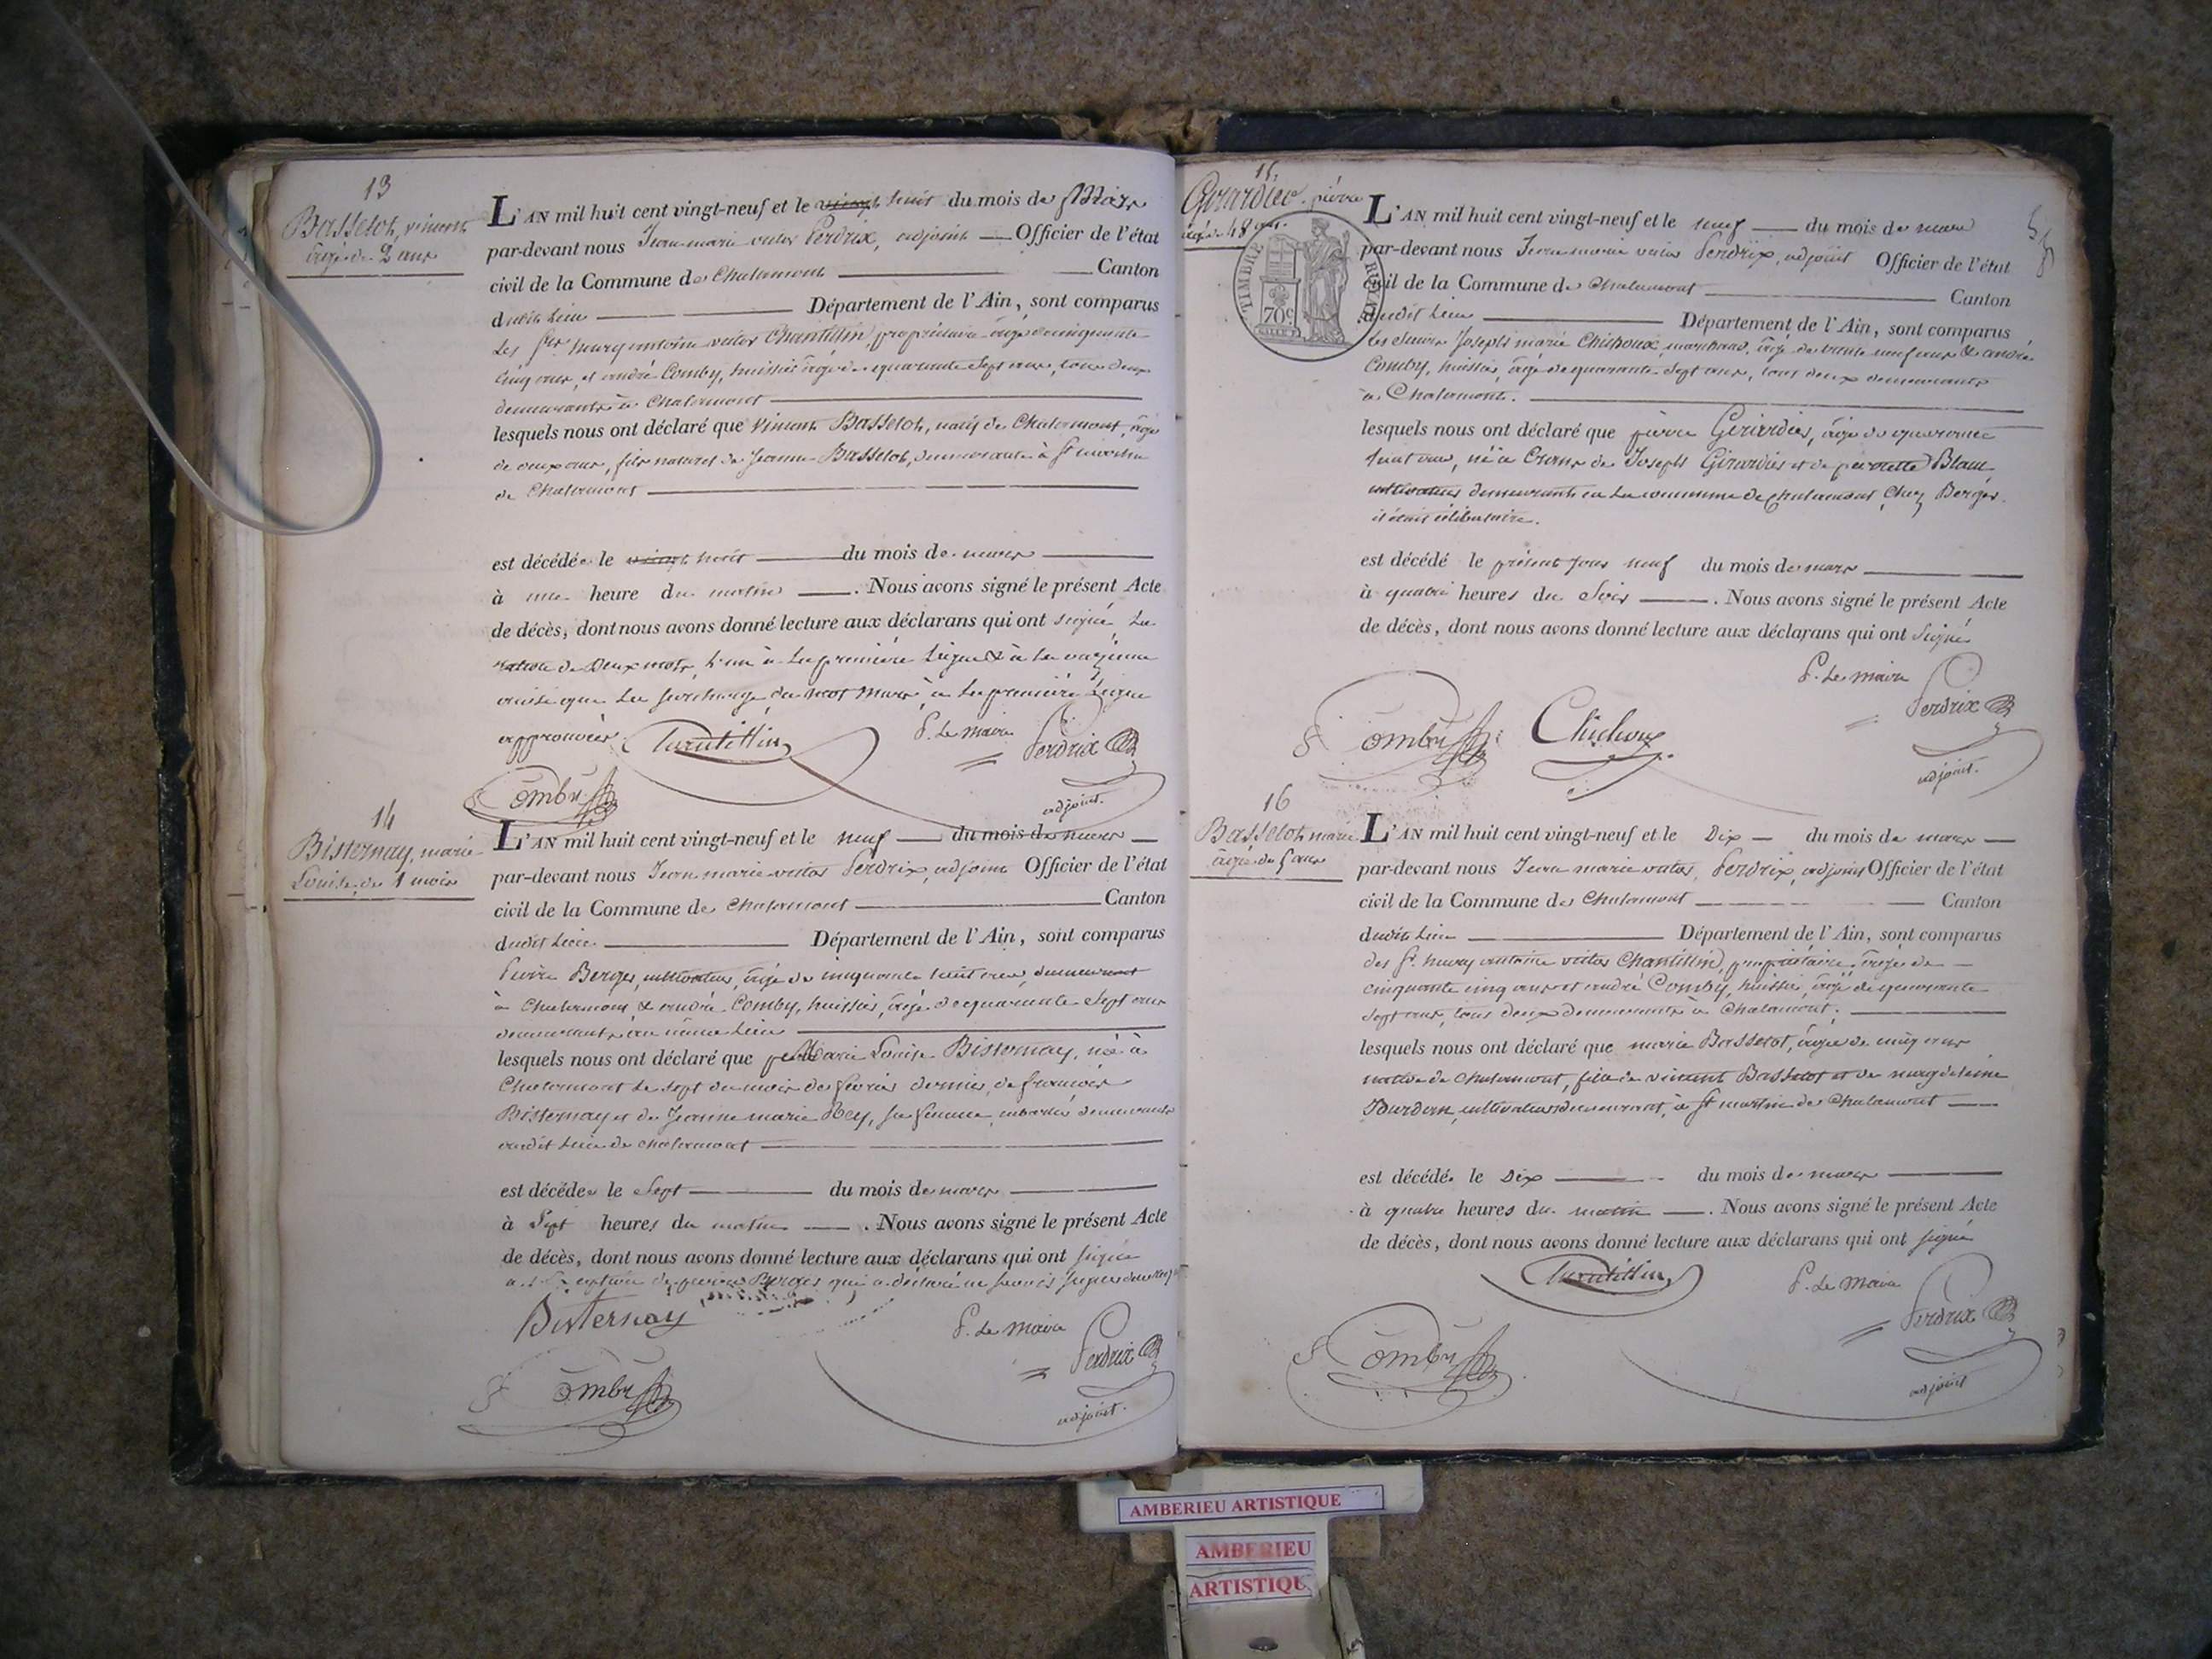 13
Basselot, vincent
âgé de 2 ans
L'AN mil huit cent vingt-neuf et le vingt huit du mois de Mars
par-devant nous Jean marie victor Perdrix, adjoint Officier de l'état
civil de la Commune de Chalamont Canton
dudit Lieu Département de l'Ain, sont comparus
Les Srs. marc antoine victor Chantillin, propriétaire âgé de cinquante
cinq ans, et andré Comby, huissier âgé de quarante sept ans, tous deux
demeurants à Chalamont
lesquels nous ont déclaré que vincent Basselot, natif de Chalamont, âgé
de deux ans, fils naturel de Jeanne Basselot, demeurante à St martin
de Chalamont
est décédé le vingt huit du mois de mars
à une heure du matin. Nous avons signé le présent Acte
de décès, dont nous avons donné lecture aux déclarans qui ont signé, La
rature de Deux mots, l'un à la première Ligne & à la
ainsi que La surcharge du mot mars à la première Ligne
approuvées.
P. Le maire
Perdrix
adjoint.
Comby
14
Bisternay, marie
Louise, de 1 mois
L'AN mil huit cent vingt-neuf et le neuf du mois de mars
par-devant nous Jean marie victor Perdrix, adjoint Officier de l'état
civil de la Commune de Chalamont Canton
dudit Lieu Département de l'Ain, sont comparus
Pierre Berger, cultivateur, âgé de cinquante huit ans, demeurant
à Chalamont & andré Comby, huissier, âgé de quarante Sept ans
demeurant au même Lieu
lesquels nous ont déclaré que Marie Louise Bisternay, née à
Chalamont Le sept du mois de février dernier, de françois
Bisternay et de Jeanne marie Rey, sa femme, demeurants
audit Lieu de Chalamont
est décédée le Sept du mois de mars
à Sept heures du matin. Nous avons signé le présent Acte
de décès, dont nous avons donné lecture aux déclarans qui ont signé
Berger qui a déclaré ne savoir
Bisternay
P. Le maire
Perdrix
adjoint.
Comby
15.
Girardier pierre
âgé de 48 ans.
TIMBRE ROYAL
70c
L'AN mil huit cent vingt-neuf et le neuf du mois de mars
par-devant nous Jean marie victor Perdrix, adjoint Officier de l'état
civil de la Commune de Chalamont Canton
dudit Lieu Département de l'Ain, sont comparus
Les Sieurs Joseph marie Chichoux, marchand, âgé de trente neuf ans & andré
Comby, huissier, âgé de quarante Sept ans, tous deux demeurants
à Chalamont.
lesquels nous ont déclaré que pierre Girardier, âgé de quarante
huit ans, né à Crans de Joseph Girardier et de pierrette Blanc
cultivateur demeurant en La commune de Chalamont, Chez Berger.
il était célibataire.
est décédé le présent jour neuf du mois de mars
à quatre heures du Soir. Nous avons signé le présent Acte
de décès, dont nous avons donné lecture aux déclarans qui ont Signé
P. Le maire
Perdrix
adjoint.
Comby Chichoux
16
Basselot marie
âgée de 5 ans
L'AN mil huit cent vingt-neuf et le Dix du mois de mars
par-devant nous Jean marie victor Perdrix, adjoint Officier de l'état
civil de la Commune de Chalamont Canton
dudit Lieu Département de l'Ain, sont comparus
des Sr. marc antoine victor Chantillin, propriétaire, âgé de
cinquante cinq ans et andré Comby, huissier, âgé de quarante
Sept ans, tous deux demeurants à Chalamont.
lesquels nous ont déclaré que marie Basselot, âgée de cinq ans
native de Chalamont, fille de vincent Basselot et de magdeleine
Bourdon, cultivateurs demeurant, à St martin de Chalamont
est décédé le Dix du mois de mars
à quatre heures du matin. Nous avons signé le présent Acte
de décès, dont nous avons donné lecture aux déclarans qui ont signé
P. Le Maire
Perdrix
adjoint
Comby
AMBERIEU ARTISTIQUE
AMBERIEU
ARTISTIQU